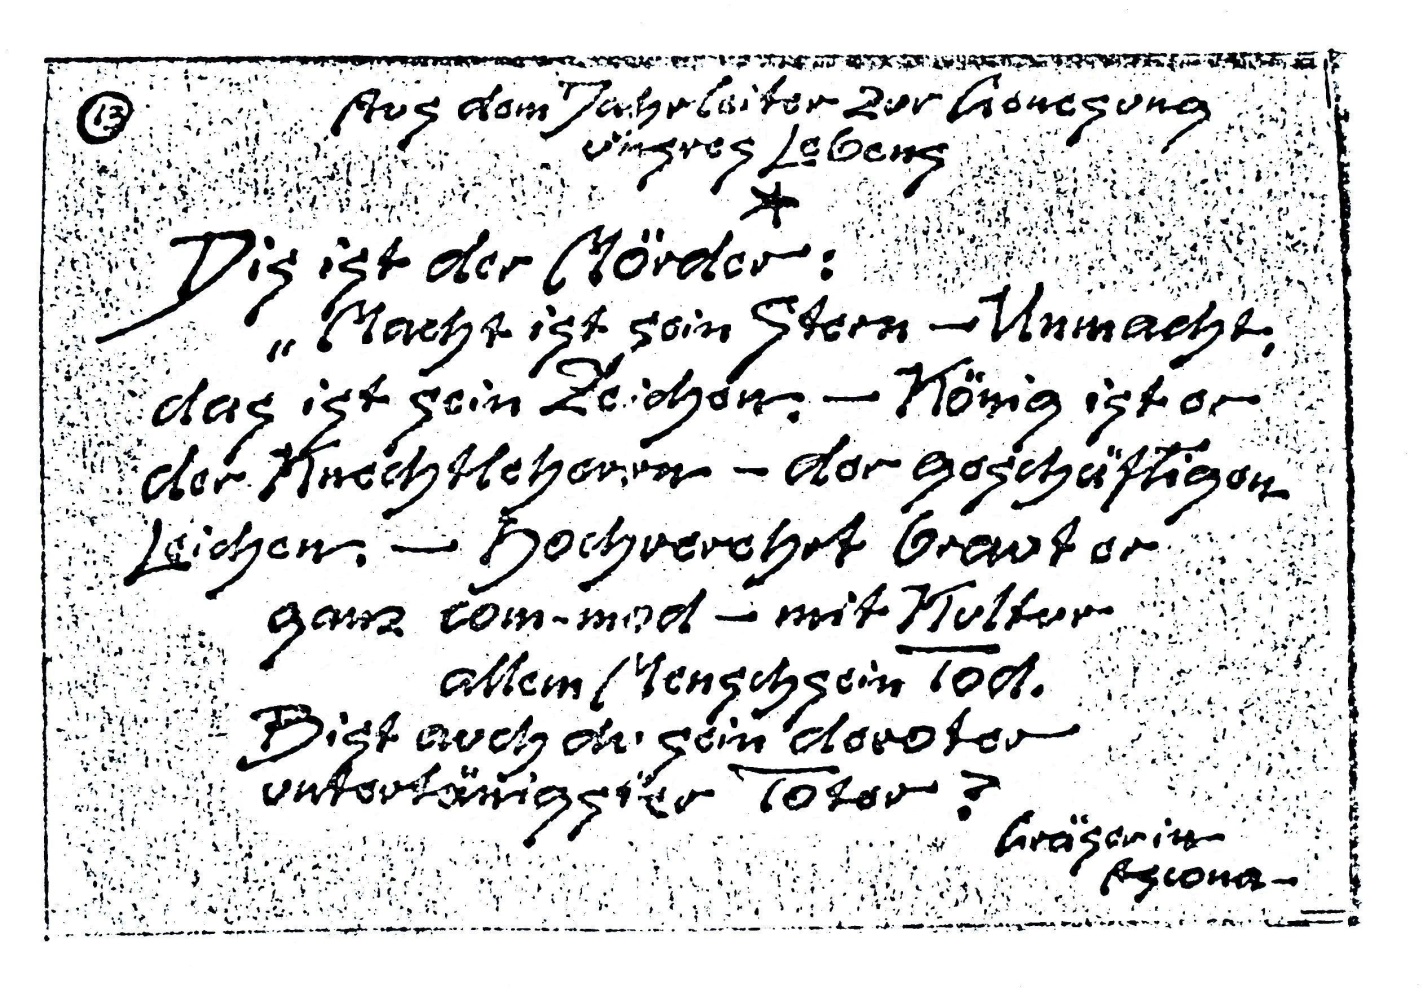 13
Aus dem Jahrleiter zur Genesung
unsres Lebens
*
Dis ist der Mörder:
„Macht ist sein Stern – Unmacht,
das ist sein Zeichen. – König ist er
der Knechtleherrn – der geschäftigen
Leichen. – Hochverehrt braut er
ganz com-mod – mit Kultur
allem Menschsein Tod.
Bist auch du sein devoter
untertänigster Toter?
Gräserin
Ascona –